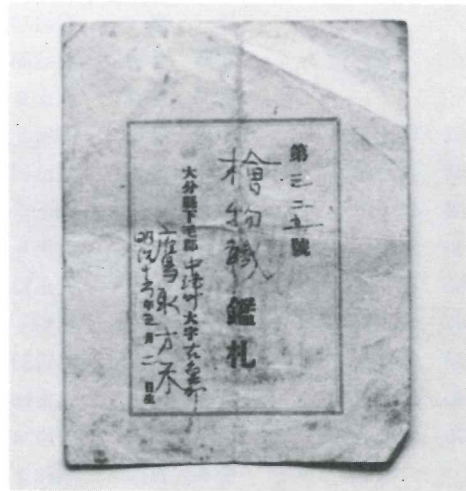 第三二五號
檜物職鑑札
大分縣下毛郡中津町大字
明治十六年 月二日生